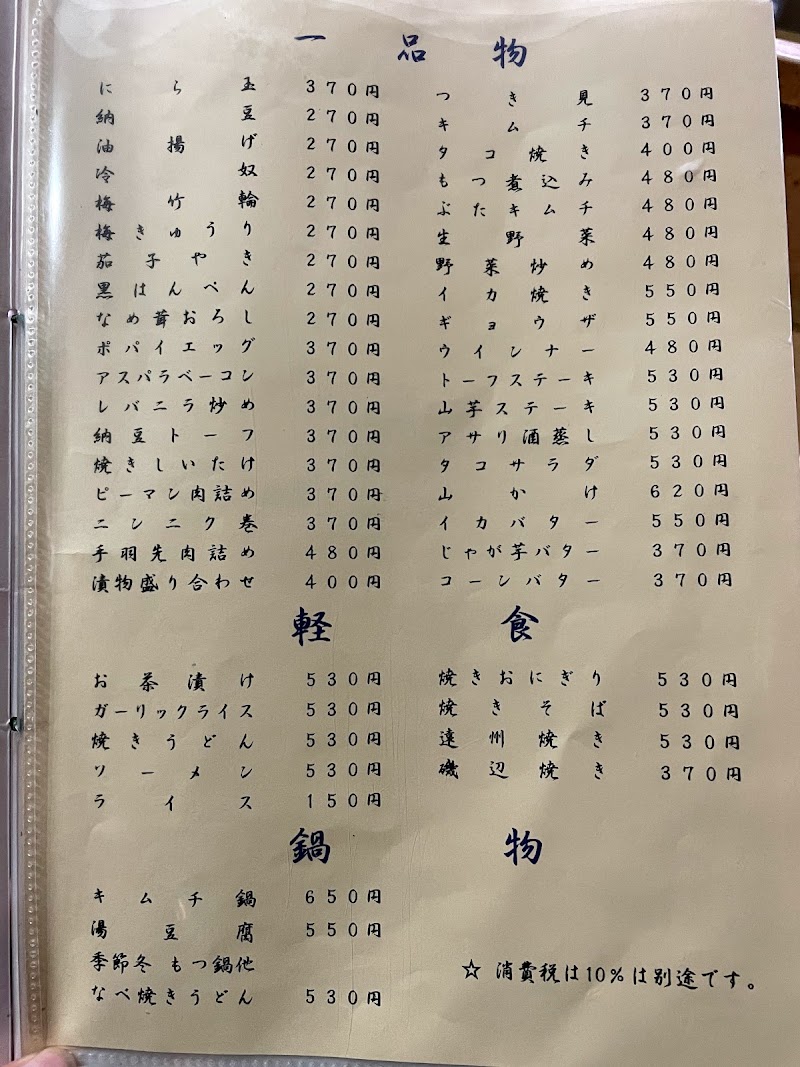 一品物
にら玉 370円
納豆 270円
油揚げ 270円
冷奴 270円
梅竹輪 270円
梅きゅうり 270円
茄子やき 270円
黒はんぺん 270円
なめ茸おろし 270円
ポパイエッグ 370円
アスパラベーコン 370円
レバニラ炒め 370円
納豆トーフ 370円
焼きしいたけ 370円
ピーマン肉詰め 370円
ニンニク巻 370円
手羽先肉詰め 480円
漬物盛り合わせ 400円
つき見 370円
キムチ 370円
タコ焼き 400円
もつ煮込み 480円
ぶたキムチ 480円
生野菜 480円
野菜炒め 480円
イカ焼き 550円
ギョウザ 550円
ウインナー 480円
トーフステーキ 530円
山芋ステーキ 530円
アサリ酒蒸し 530円
タコサラダ 530円
山かけ 620円
イカバター 550円
じゃが芋バター 370円
コーンバター 370円
軽食
お茶漬け 530円
ガーリックライス 530円
焼きうどん 530円
ソーメン 530円
ライス 150円
焼きおにぎり 530円
焼きそば 530円
遠州焼き 530円
磯辺焼き 370円
鍋物
キムチ鍋 650円
湯豆腐 550円
季節冬 もつ鍋他
なべ焼きうどん 530円
☆ 消費税は10%は別途です。